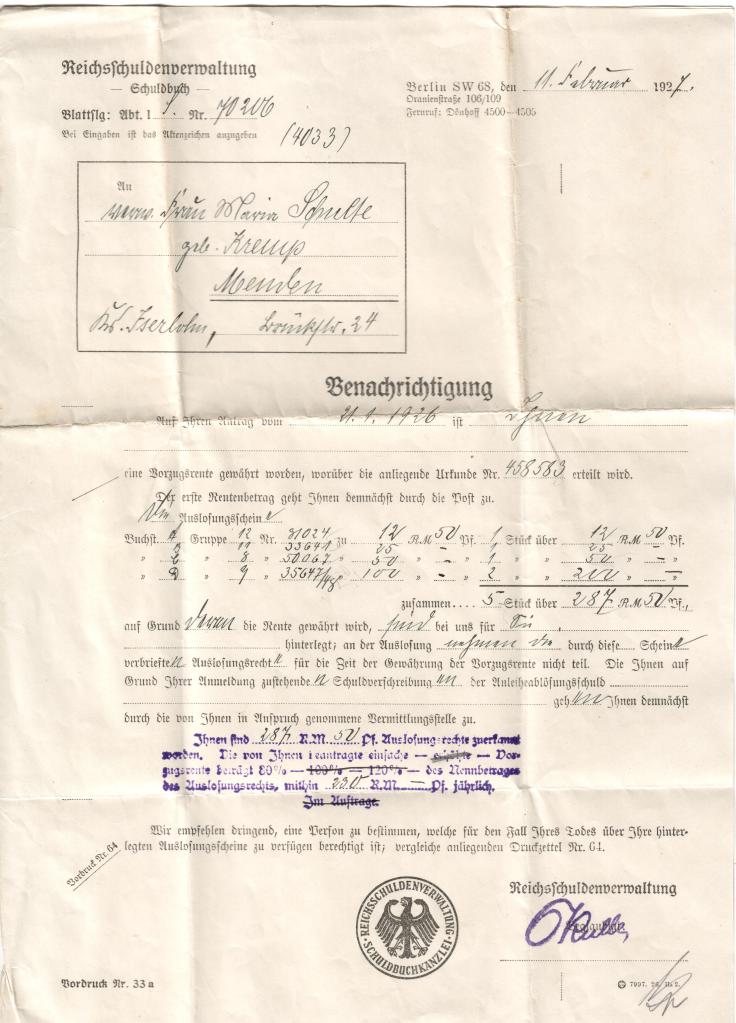 Reichsschuldenverwaltung
— Schuldbuch —
Blattslg: Abt. I S. Nr. 70206
Bei Eingaben ist das Aktenzeichen anzugeben
(4033)
Berlin SW 68, den 11. Februar 1927.
Oranienstraße 106/109
Fernruf: Dönhoff 4500—4505
An
verw. Frau Maria Schulte
geb. Kremp
Menden
Krs. Iserlohn, Brückstr. 24
Benachrichtigung
Auf Ihren Antrag vom 21.1.1926 ist Ihnen
eine Vorzugsrente gewährt worden, worüber die anliegende Urkunde Nr. 458583 erteilt wird.
Der erste Rentenbetrag geht Ihnen demnächst durch die Post zu.
Die Auslosungsscheine
Buchst. A Gruppe 12 Nr. 31024 zu 12 RM 50 Pf. 1 Stück über 12 RM 50 Pf.
" " 11 " 33641 " 25 " - " 1 " " 25 " - "
" " 8 " 50067 " 50 " - " 1 " " 50 " - "
" D " 9 " 35647/48 " 100 " - " 2 " " 200 " - "
zusammen.... 5 Stück über 287 RM 50 Pf.,
auf Grund deren die Rente gewährt wird, sind bei uns für Sie
hinterlegt; an der Auslosung nehmen die durch diese Scheine
verbrieften Auslosungsrechte für die Zeit der Gewährung der Vorzugsrente nicht teil. Die Ihnen auf
Grund Ihrer Anmeldung zustehenden Schuldverschreibungen der Anleiheablösungsschuld
gehen Ihnen demnächst
durch die von Ihnen in Anspruch genommene Vermittlungsstelle zu.
Ihnen sind 287 R.M. 50 Pf. Auslosungsrechte zuerkannt
worden. Die von Ihnen beantragte einfache — erhöhte — Vor-
zugsrente beträgt 80% — 100% — 120% — des Nennbetrages
des Auslosungsrechts, mithin 230 R.M. Pf. jährlich.
Im Auftrage.
Wir empfehlen dringend, eine Person zu bestimmen, welche für den Fall Ihres Todes über Ihre hinter-
legten Auslosungsscheine zu verfügen berechtigt ist; vergleiche anliegenden Druckzettel Nr. 64.
Vordruck Nr. 64
REICHSSCHULDENVERWALTUNG
SCHULDBUCHKANZLEI
Reichsschuldenverwaltung
Vordruck Nr. 33a
7997. 26. II. 2.